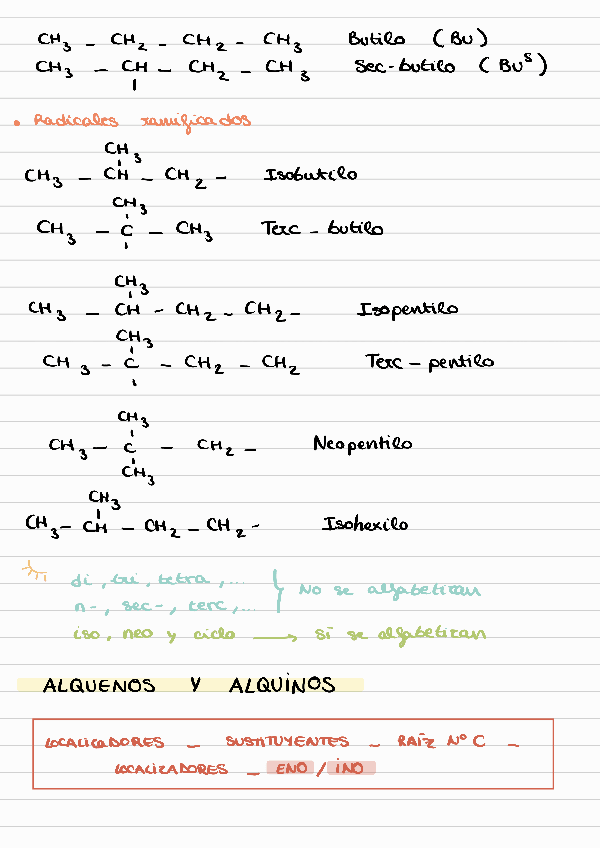 CH₃ – CH₂ – CH₂ – CH₃ Butilo (Bu)
CH₃ – CH – CH₂ – CH₃ Sec-butilo (Buˢ)
• Radicales ramificados
CH₃
CH₃ – CH – CH₂ – Isobutilo
CH₃
CH₃ – C – CH₃ Terc-butilo
CH₃
CH₃ – CH – CH₂ – CH₂ – Isopentilo
CH₃
CH₃ – C – CH₂ – CH₂ Terc-pentilo
CH₃
CH₃ – C – CH₂ – Neopentilo
CH₃
CH₃
CH₃ – CH – CH₂ – CH₂ – Isohexilo
di, tri, tetra, ...
No se alfabetizan
n-, sec-, terc, ...
iso, neo y ciclo → sí se alfabetizan
ALQUENOS Y ALQUINOS
LOCALIZADORES – SUSTITUYENTES – RAÍZ Nº C –
LOCALIZADORES – ENO / INO